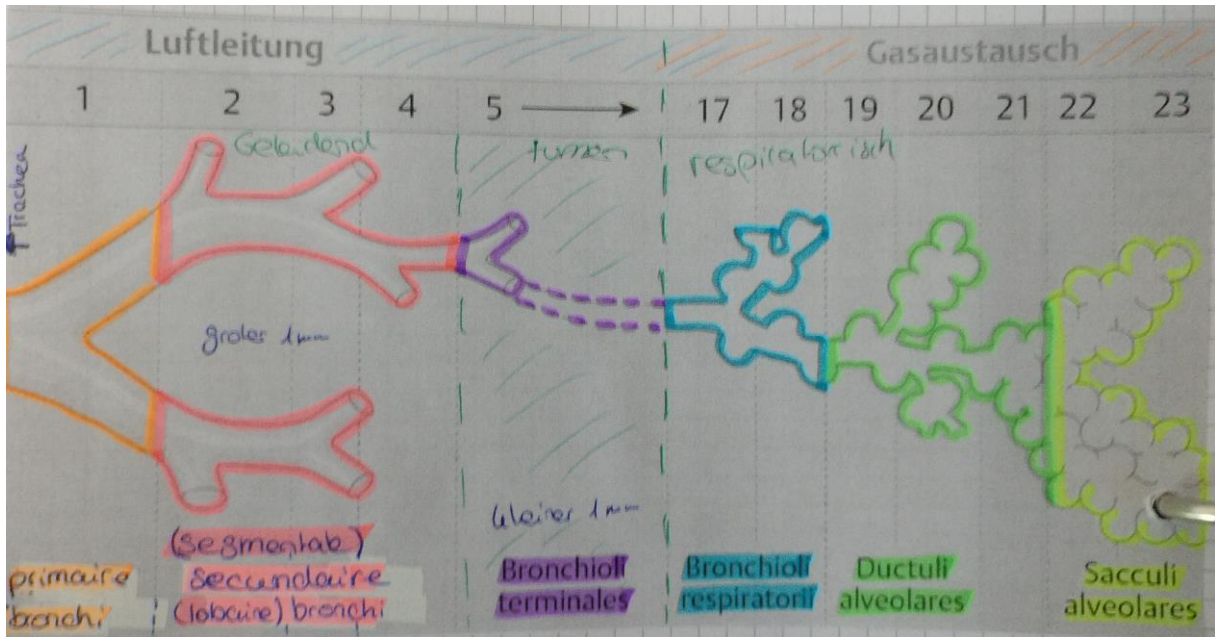 Luftleitung Gasaustausch
1 2 3 4 5 17 18 19 20 21 22 23
Trachea
respiratorisch
groter 1mm
kleiner 1mm
(segmentale)
primaire
bronchi
secundaire
(lobaire) bronchi
Bronchioli
terminales
Bronchioli
respiratorii
Ductuli
alveolares
Sacculi
alveolares